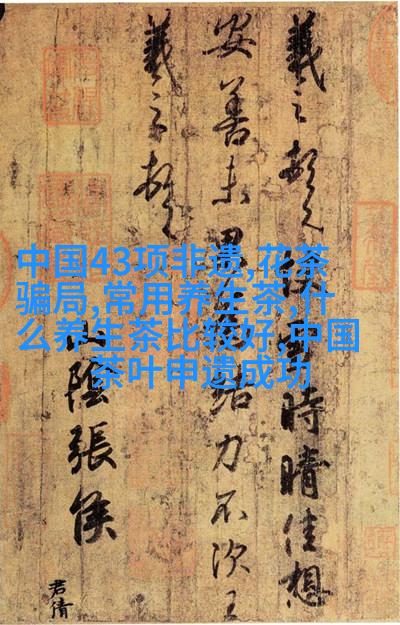 羲之頓首快雪時晴佳想
安善未果結力不次王
羲之頓首
山陰張侯
君倩
中国43项非遗,花茶
骗局,常用养生茶,什
么养生茶比较好,中国
茶叶申遗成功